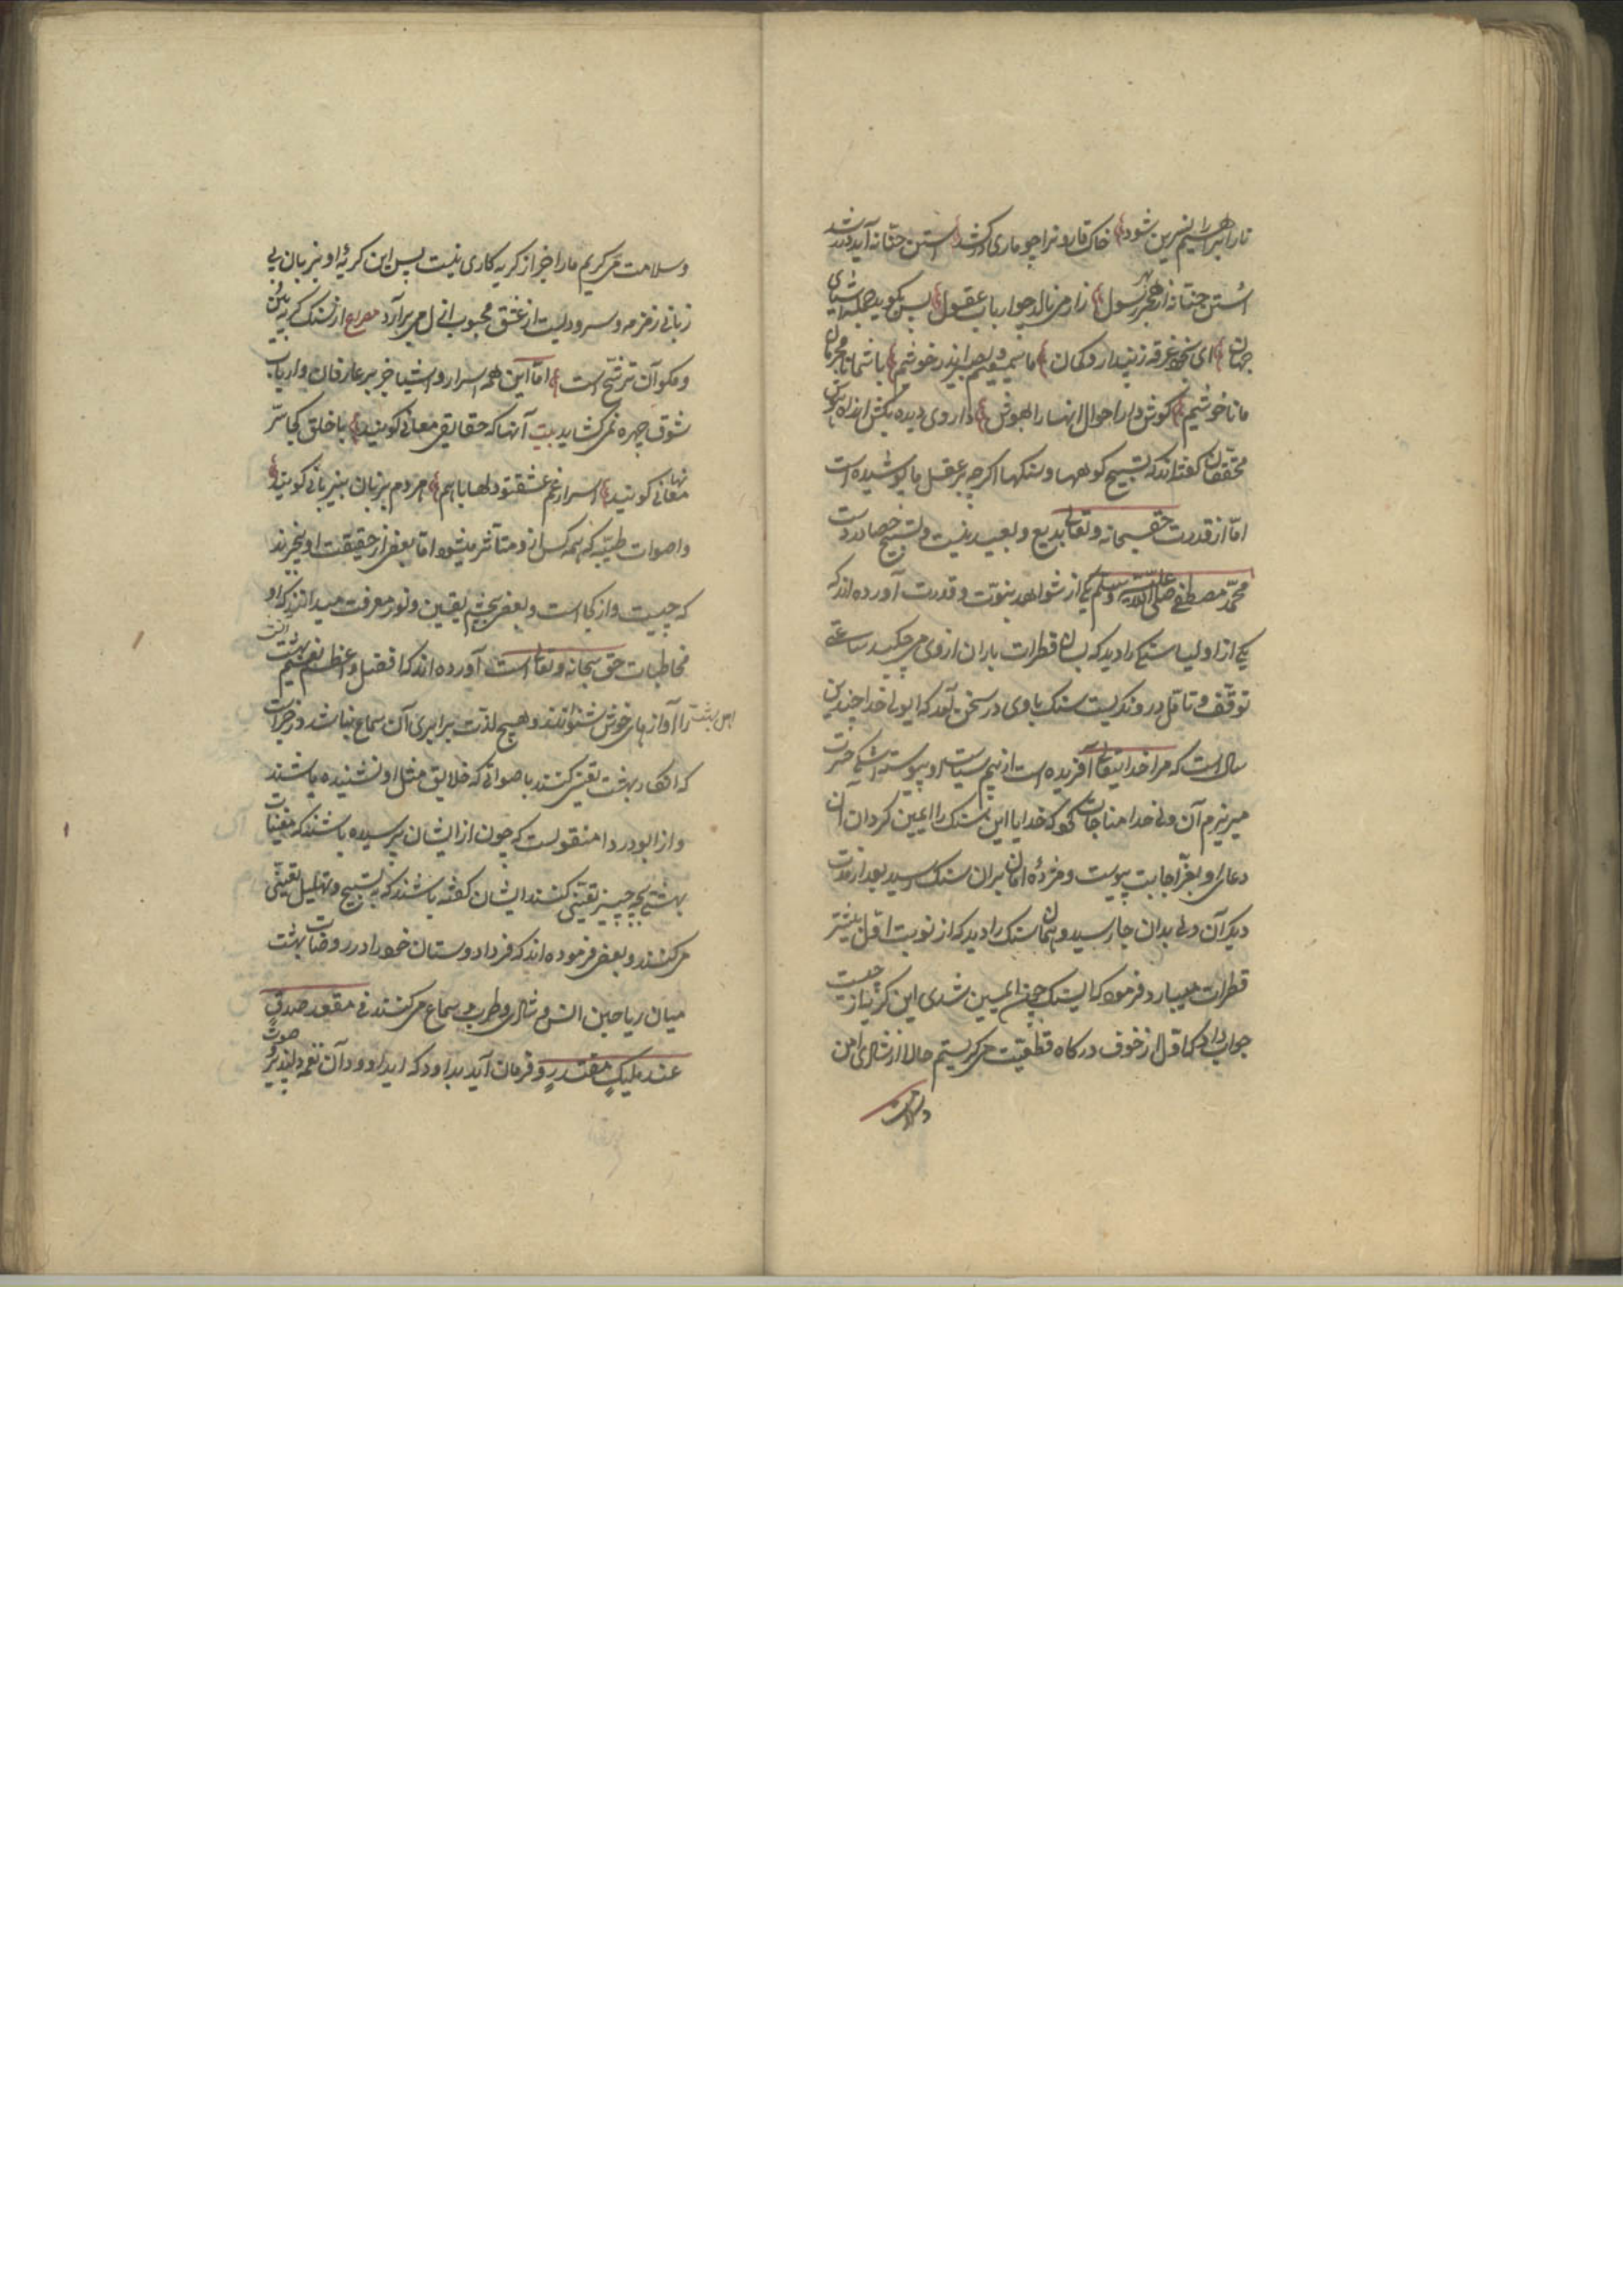 نار ابراهیم را نسرین شود خاک قارون را چو ماری درکشد استن حنانه آید در رشد
استن حنانه از هجر رسول زار می نالد چو ارباب عقول پس بگوید جمله اشیای
جهان ای شما غرقه ز پندار و گمان ما سمیعیم و بصیر اندر خوشیم با شما نامحرمان
ما ناخوشیم گوش دار احوال اینها را بهوش داروی دیده بکش اندر
محققان گفته اند که تسبیح کوهها و سنگها اگر چه بر عقل ما پوشیده است
اما از قدرت حق سبحانه و تعالی بدیع و بعید نیست و تسبیح حصا در دست
محمد مصطفی صلی الله علیه وسلم یکی از شواهد نبوت و قدرت آورده اند که
یکی از اولیا سنکی را دید که بسان قطرات باران از وی می چکید ساعتی
توقف و تامل در وی نکریست سنک باوی در سخن آمد که ای ولی خدا چندین
سال است که مرا خدایتعالی آفریده است از بیم سیاست او پیوسته اشک حسرت
میریزم آن ولی خدا مناجات کرد که خدایا این سنک را ایمن کردان آن
دعای او بعز اجابت پیوست و مژدهٔ امان بدان سنک رسید بعد از مدت
دیکر آن ولی بدان جا رسید و همان سنک را دید که از نوبت اول بیشتر
قطرات میبارد فرمود که ای سنک چون ایمن شدی این کریه از چیست
جواب داد که اول از خوف درکاه قطعیت می کریستم حالا از شادی امن
و سلامت
و سلامت می کریم ما را جز از کریه کاری نیست پس این کریهٔ او بزبان بی
زبانی زمزمه و سرودیست از عشق محبوب ازل می برآرد مصراع از سنک کریه بین
و مکو آن ترشح است اما این همه اسرار و اشیا جز بر عارفان و ارباب
شوق چهره نمی کشاید بیت آنها که حقایق معانی کویند با خلق کجا سر
نهانی کویند اسرار غم عشق تو دلها با هم هر دم بزبان بیزبانی کویند
و اصوات طیبه که همه کس از و متأثر میشود اما بعضی از حقیقت او بیخبرند
که چیست و از کجاست و بعضی بچشم یقین و نور معرفت میدانند که او
مخاطبات حق سبحانه و تعالی است آورده اند که افضل و اعظم نعیم بهشت آنست
اهل بهشت را آوازهای خوش شنوانند و هیچ لذت برابری آن سماع نباشد در خبر است
که در بهشت تغنی کنند باصواتی که خلایق مثل او نشنیده باشند
و از ابو دردا منقولست که چون از ایشان پرسیده باشند که مغنیات
بهشتی بچه چیز تغنی کنند ایشان کفته باشند که به تسبیح و تهلیل تغنی
می کنند و بعضی فرموده اند که فردا دوستان خدا در روضات بهشت
میان ریاحین انس و شادی و طرب سماع می کنند فی مقعد صدق
عند ملیک مقتدر و فرمان آید بداود که ای داوود آن نغمه دلپذیر صوت